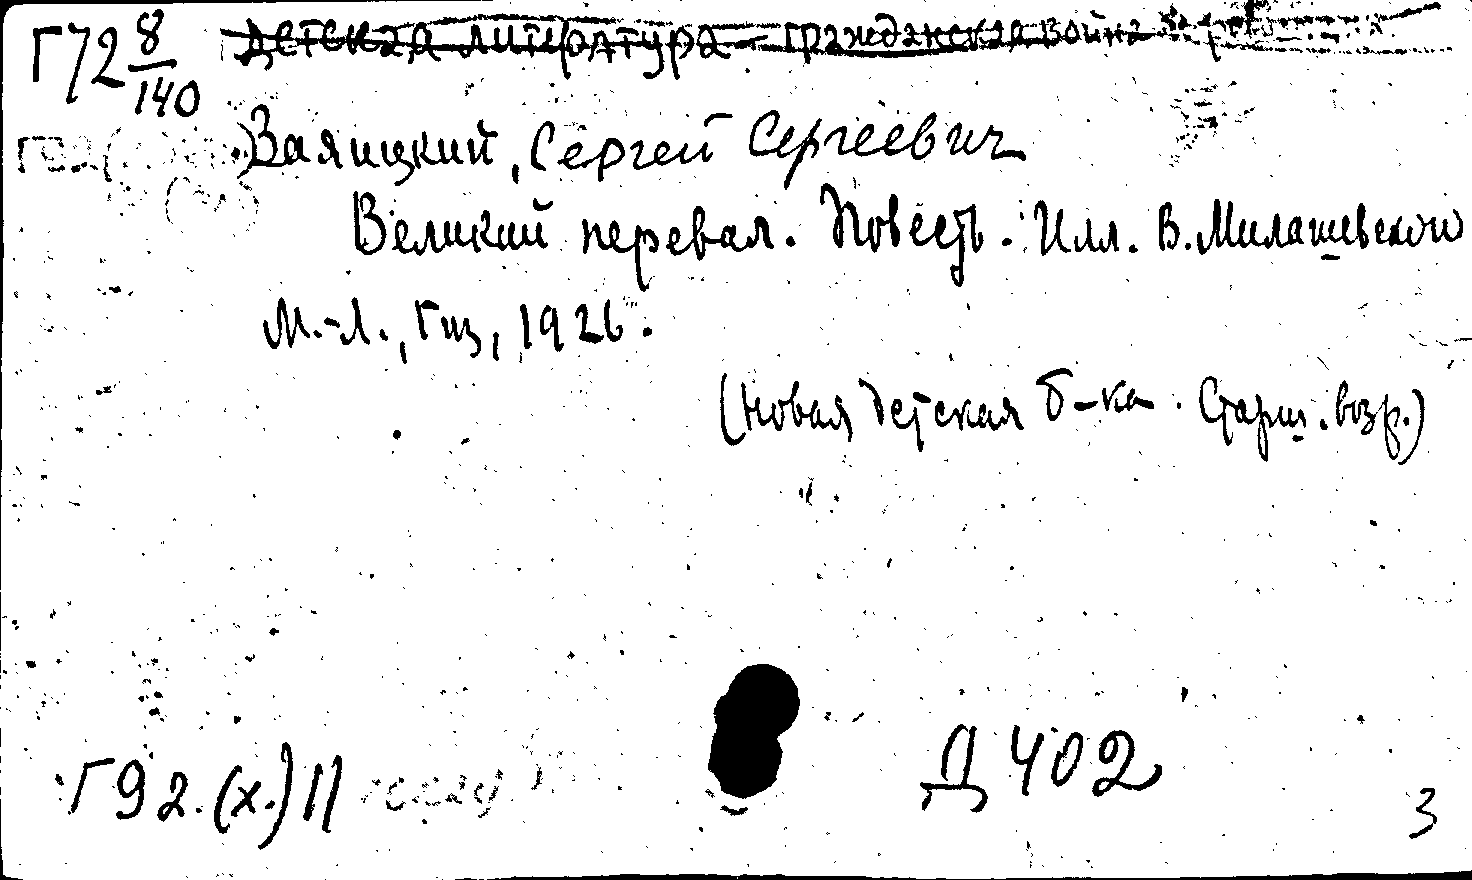 Г72 8/140
Детская литература - гражданская война
Заяицкий, Сергей Сергеевич
Великий перевал. Повесть. Илл. В. Милашевской
М.-Л., Гиз, 1926.
(Новая детская б-ка. Старш. возр.)
Г92.(х.)11
Д402
3